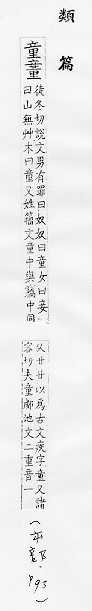 類篇
童𥫍 徒冬切說文男有辠曰奴奴曰童女曰妾一
曰山無艸木曰童又姓籒文童中與竊中同
从廿廿以爲古文疾字童又諸
容切夫童鄬地文二重音一